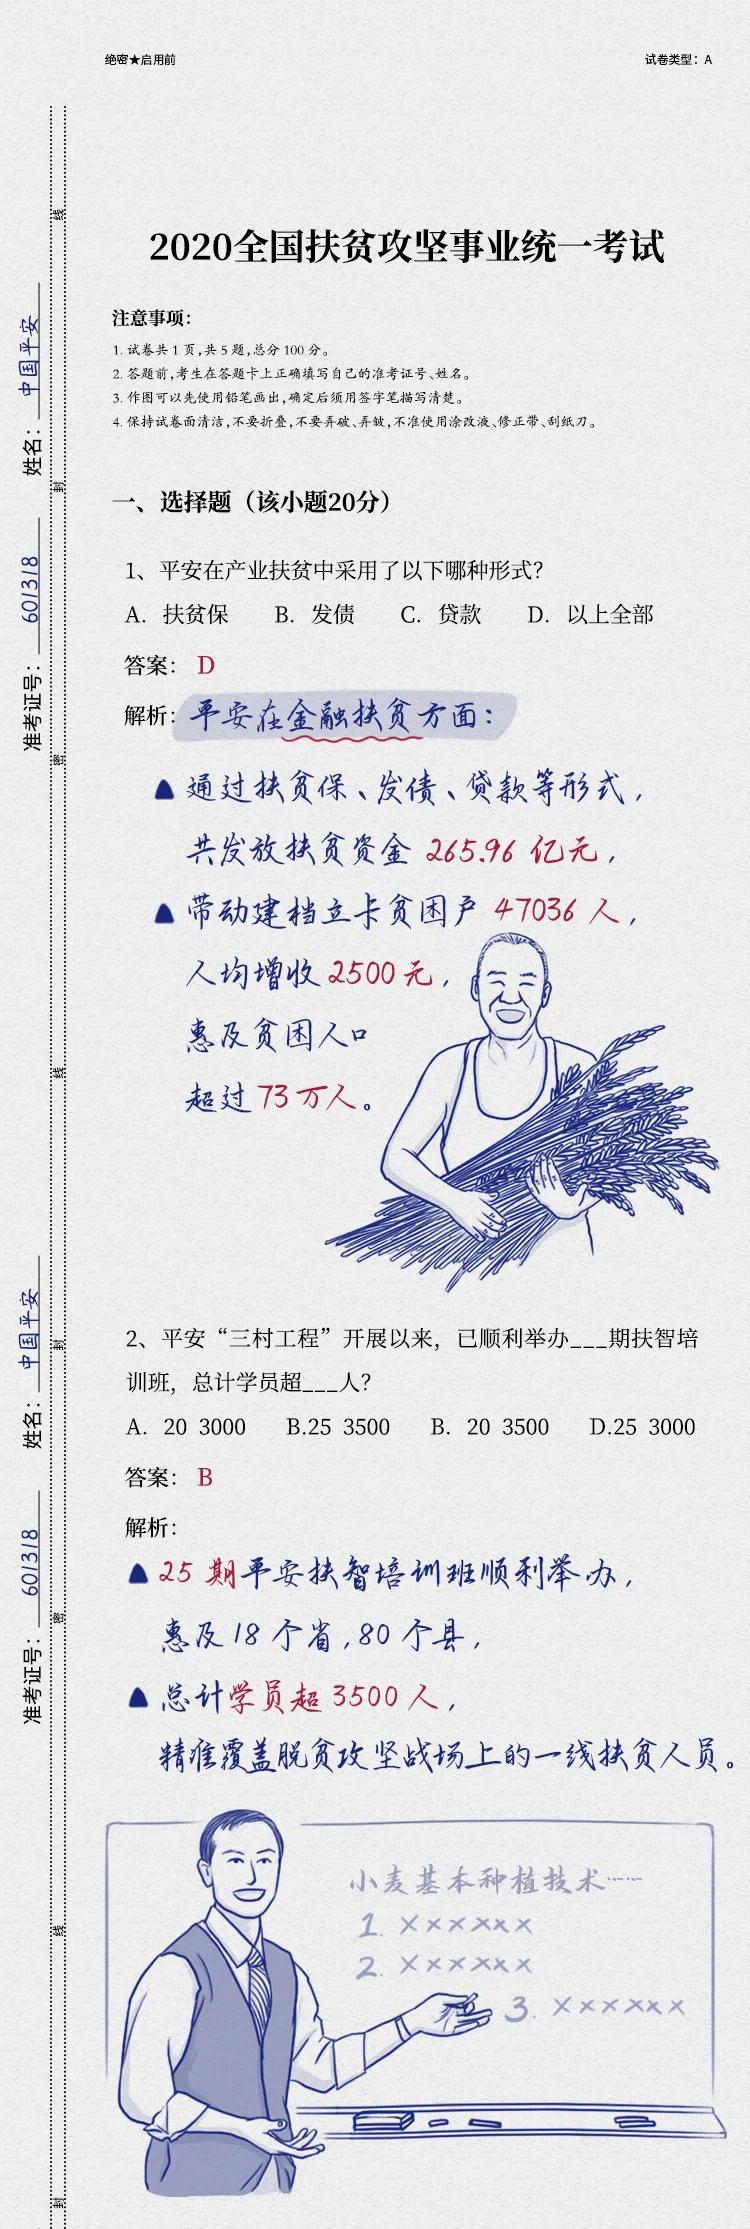 绝密★启用前
试卷类型：A
2020全国扶贫攻坚事业统一考试
注意事项：
1. 试卷共1页，共5题，总分100分。
2. 答题前，考生在答题卡上正确填写自己的准考证号、姓名。
3. 作图可以先使用铅笔画出，确定后须用签字笔描写清楚。
4. 保持试卷面清洁，不要折叠，不要弄破、弄皱，不准使用涂改液、修正带、刮纸刀。
线
姓名：中国平安
封
准考证号：601318
密
一、选择题（该小题20分）
1、平安在产业扶贫中采用了以下哪种形式？
A. 扶贫保 B. 发债 C. 贷款 D. 以上全部
答案： D
解析：平安在金融扶贫方面：
▲通过扶贫保、发债、贷款等形式，
共发放扶贫资金 265.96 亿元，
▲带动建档立卡贫困户 47036 人，
人均增收 2500 元，
惠及贫困人口
超过 73 万人。
线
姓名：中国平安
封
准考证号：601318
密
2、平安“三村工程”开展以来，已顺利举办___期扶智培
训班，总计学员超___人？
A. 20 3000 B.25 3500 B. 20 3500 D.25 3000
答案： B
解析：
▲25 期平安扶智培训班顺利举办，
惠及18个省，80个县，
▲总计学员超 3500 人，
精准覆盖脱贫攻坚战场上的一线扶贫人员。
线
小麦基本种植技术……
1. ××××××
2. ××××××
3. ××××××
封